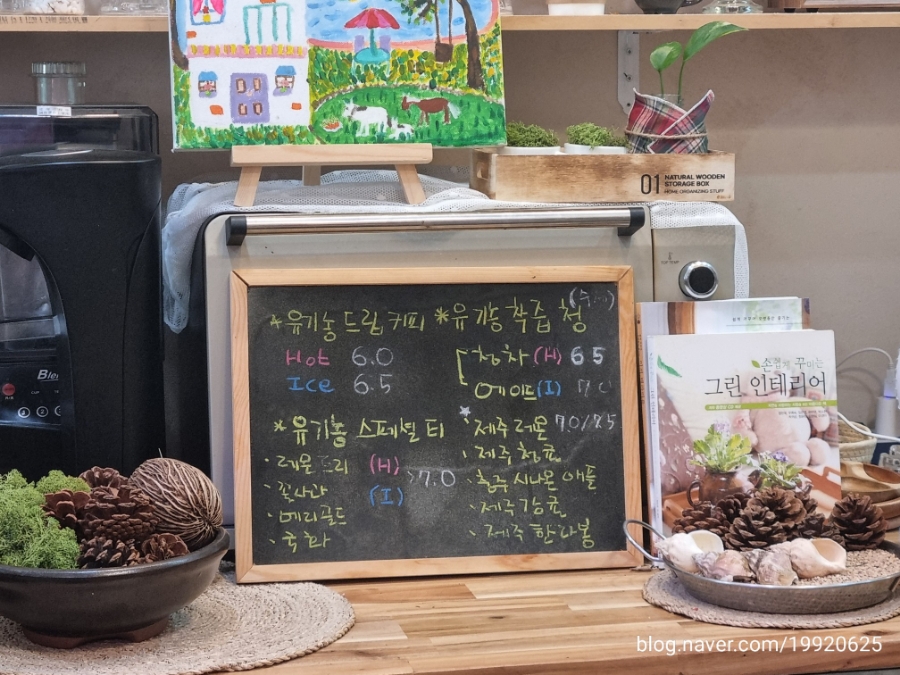 01 NATURAL WOODEN
STORAGE BOX
HOME ORGANIZING STUFF
*유기농드립커피
Hot 6.0
Ice 6.5
*유기농 스페셜티
· 레몬트리
· 꽃사과
· 메리골드
· 국화
(H)
(I)
>7.0
*유기농착즙청
청차(H) 6.5
에이드(I)
제주레몬 7.0/7.5
· 제주청귤
· 청주시나몬애플
· 제주감귤
· 제주한라봉
손쉽게 꾸미는
그린 인테리어
Ble
blog.naver.com/19920625